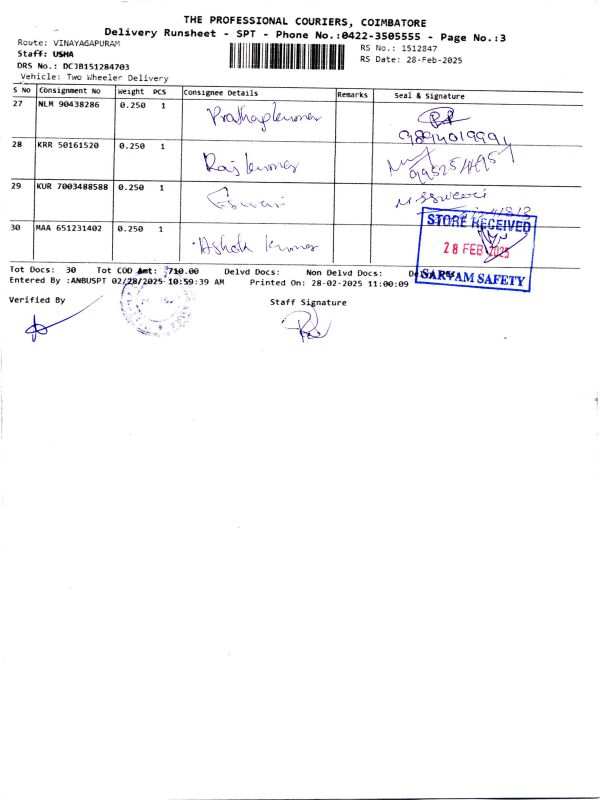 THE PROFESSIONAL COURIERS, COIMBATORE
Delivery Runsheet - SPT - Phone No.:0422-3505555 - Page No.:3
Route: VINAYAGAPURAM
RS No.: 1512847
Staff: USHA
RS Date: 28-Feb-2025
DRS No.: DCJB151284703
Vehicle: Two Wheeler Delivery
S No Consignment No Weight PCS Consignee Details Remarks Seal & Signature
27 NLM 90438286 0.250 1 Prathapkumar
9894019991
28 KRR 50161520 0.250 1 Rajkumar
29 KUR 7003488588 0.250 1 Eswari
30 MAA 651231402 0.250 1 Ashok Kumar
STORE RECEIVED
28 FEB 2025
SARVAM SAFETY
Tot Docs: 30 Tot COD Amt: 710.00 Delvd Docs: Non Delvd Docs:
Entered By :ANBUSPT 02/28/2025 10:59:39 AM Printed On: 28-02-2025 11:00:09
Verified By Staff Signature